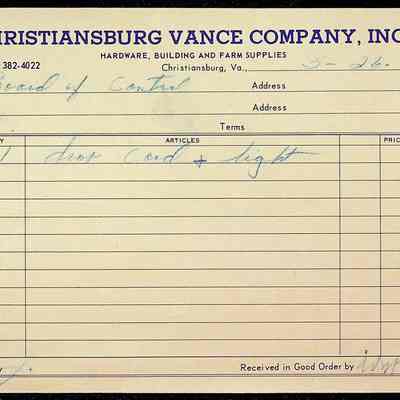 HRISTIANSBURG VANCE COMPANY, INC
HARDWARE, BUILDING AND FARM SUPPLIES
382-4022 Christiansburg, Va., 3-26.
Board of Control Address
Address
Terms
Y ARTICLES PRIC
1 drop cord + light
Received in Good Order by